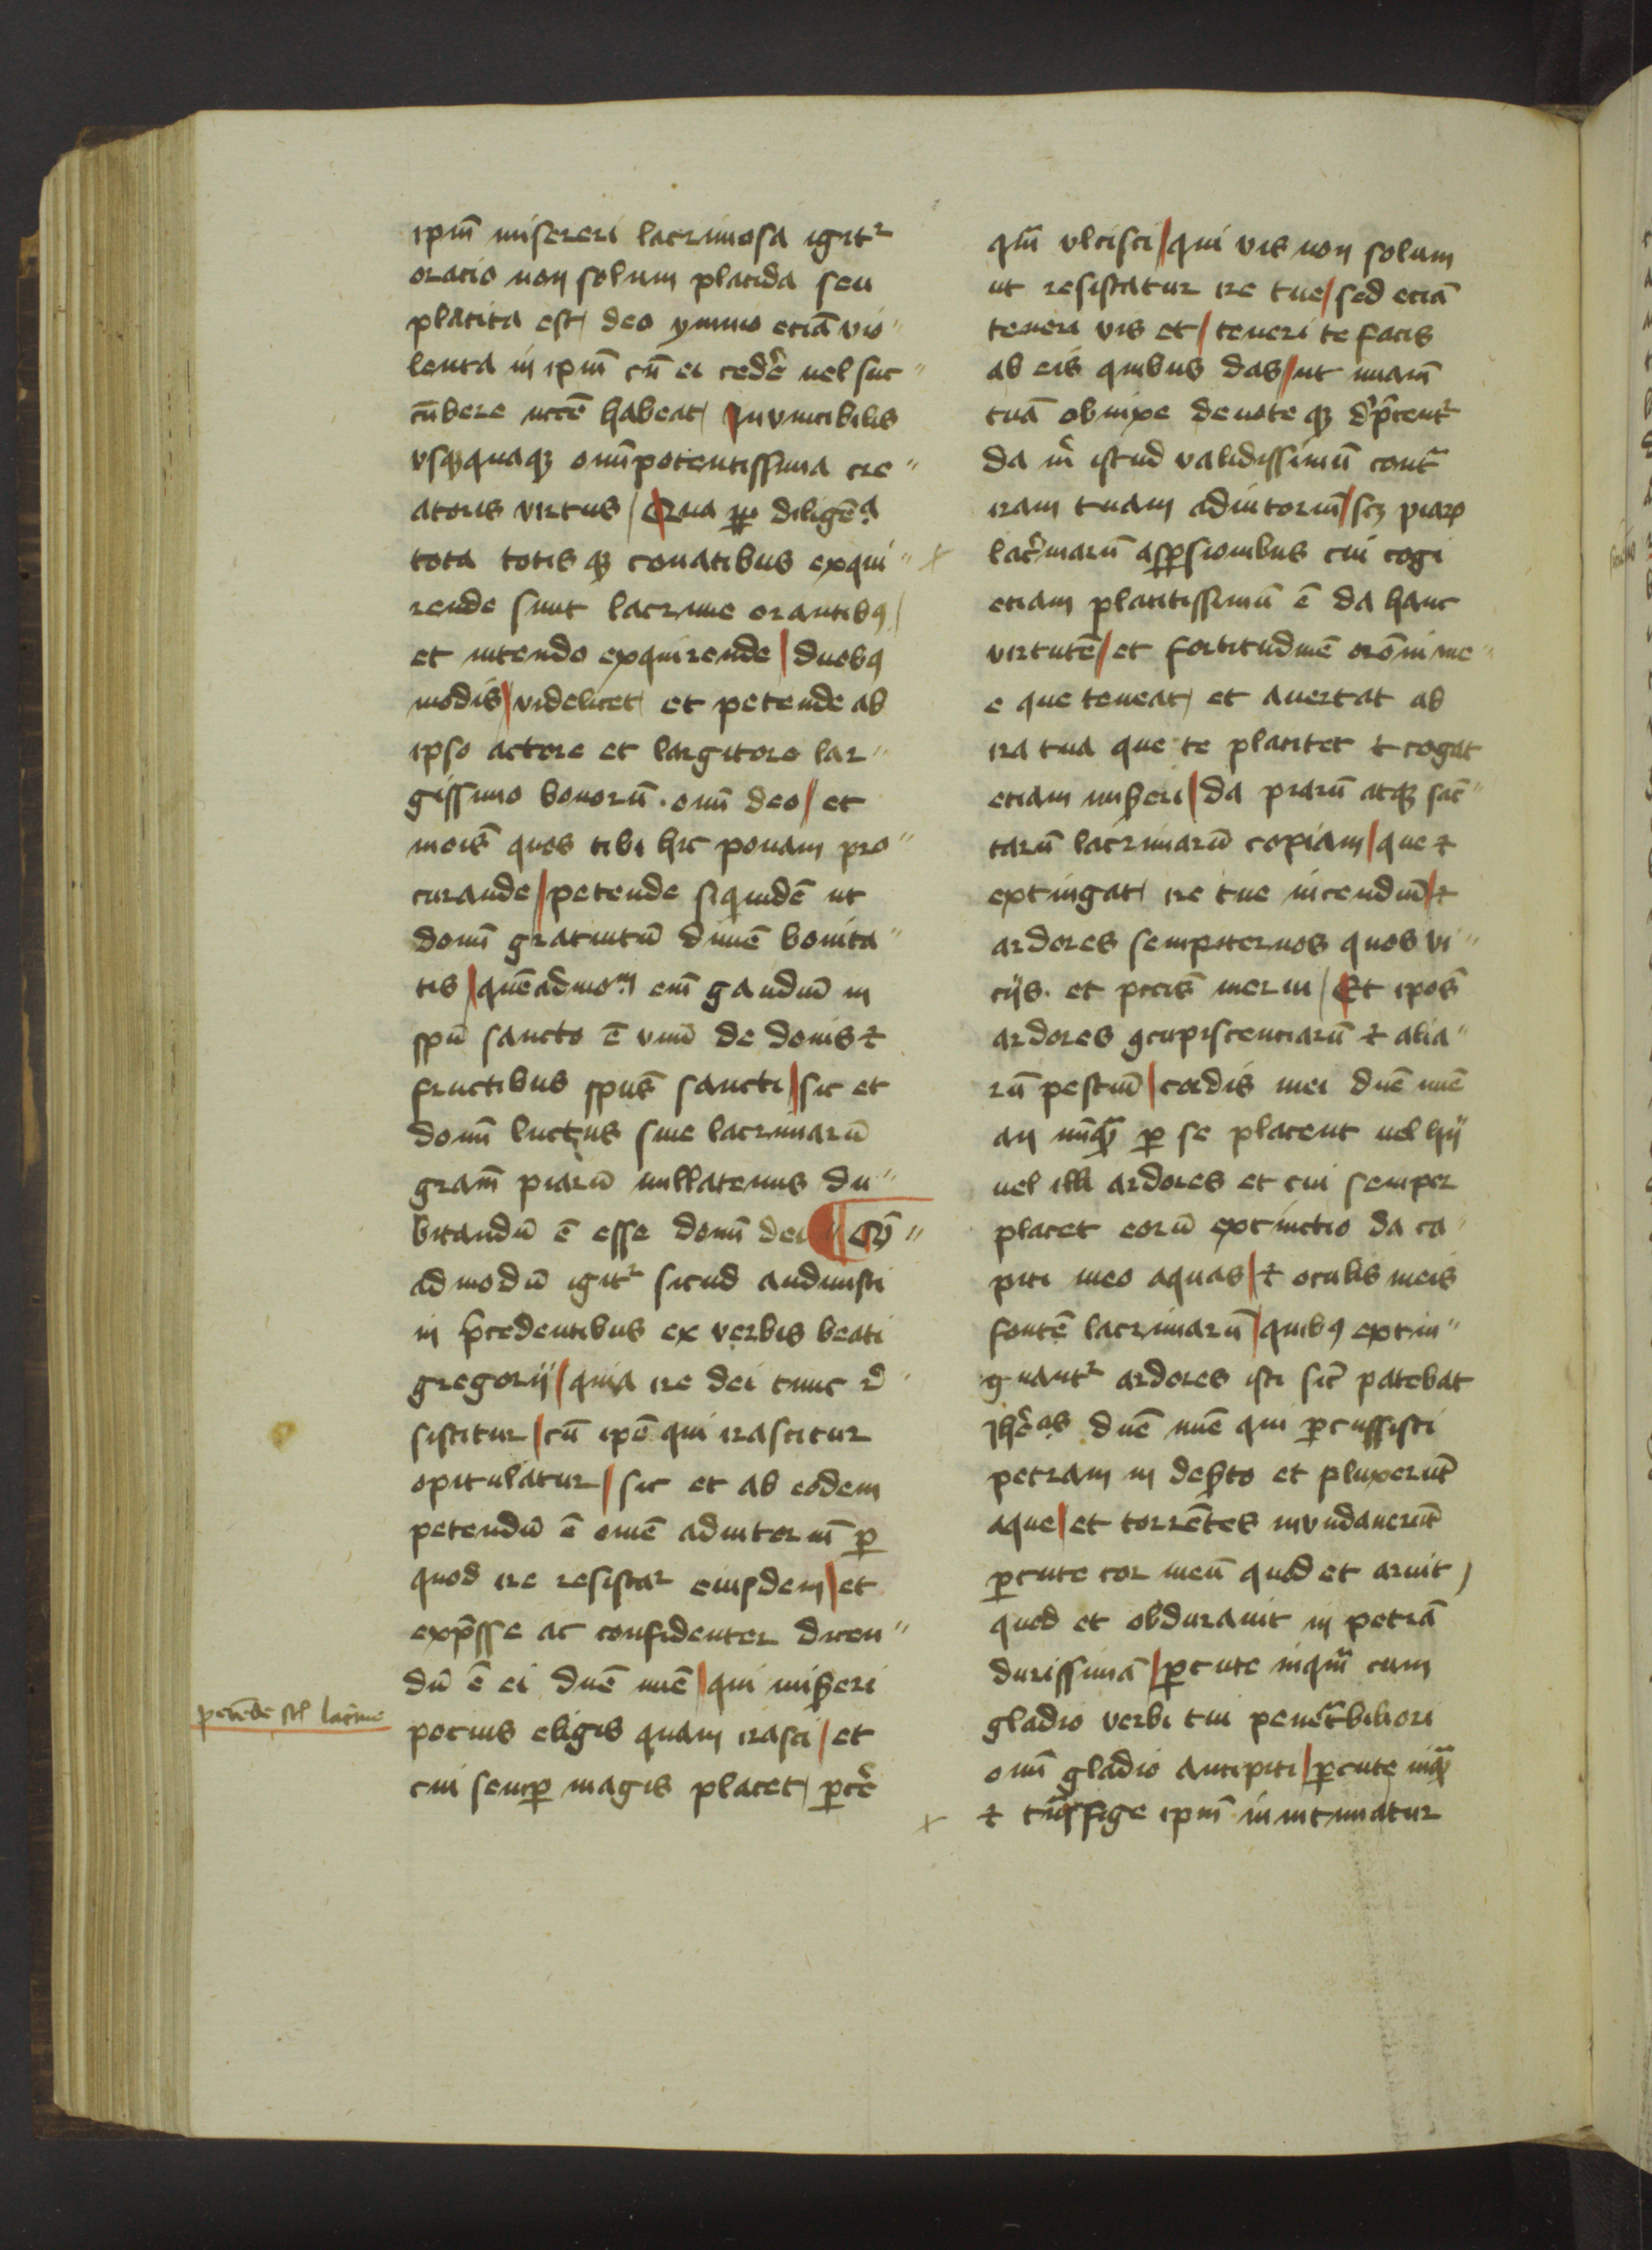 ipm̄ misereri lacrimosa igitᷣ
oracio non solum placida seu
placita est deo ymmo eciā vio"
lenta in ipm̄ cū ei cedẽ uel suc"
cūbere necē habeat / Inuincibilis
vsqꝫquaqꝫ omīpotentissima cre"
atoris virtus / Qua ꝓpt diligēcia
tota totis qꝫ conatibus exqui"
rende sunt lacrime orantibꝰ /
et intendo exquirende / duobꝰ
modis / videlicet / et petende ab
ipso actore et largitore lar"
gissimo bonorū . omī deo / et
meis̄ quos tibi hic ponam pro"
curande / petende siquidē ut
donū gratuitū diuīe bonita"
tis / quēadmom̄ em̄ gaudiū in
spū sancto ē vnū de donis ⁊
fructibus spūs sancti / sic et
donū luctus siue lacrimarū
gram̄ piarū nullatenus du"
bitandū ē esse donū dei ¶ Quē"
admodū igitᷣ sicud audiuisti
in p̄cedentibus ex verbis beati
gregorij / quia ire dei tunc re"
sistitur / cū ipē qui irascitur
opitulatur / sic et ab eodem
petendū ē omē adiutoriū ꝑ
quod ire resistaᷣ eiusdem / et
exp̄sse ac confidenter dicen"
dū ē ei dn̄e mē / qui miẜeri
pocius eligis quam irasci / et
cui semꝑ magis placet / ꝑcẽ
petēde sl̄ lacrime
qm̄ vlcisci / qui vis non solum
ut resistatur ire tue / sed eciā
teneri vis et / teneri te facis
ab eis quibus das / ut miam̄
tuā obnixe deuote qꝫ dp̄centᷣ
da m̄ istud validissimū contᷓ
iram tuam adiutoriū / scꝫ piaꝝ
lacᷓmarū asꝑsionibus cui cogi
etiam placitissimū ē da hanc
virtutē / et fortitudinē orōni me"
e que teneat / et auertat ab
ira tua que te placitet ⁊ cogat
etiam miẜeri / da piarū atqꝫ sāc"
tarū lacrimarū copiam / que ⁊
extingat / ire tue incendiū / ⁊
ardores sempiternos quos vi"
cijs . et pccis̄ merui / Et ipos̄
ardores ꝯcupiscenciarū ⁊ alia"
rū pestiū / cordis mei dn̄e mē
an nūqᷓ ꝑ se placent uel hij
uel illi ardores et cui semper
placet eorū extinctio da ca"
piti meo aquas / ⁊ oculis meis
fontē lacrimarū / quibꝰ extin"
guantᷣ ardores isti sic̄ patebat
Jhēas dn̄e mē qui ꝑcussisti
petram in deẜto et fluxerūt
aque / et torrētes inundauerūt
ꝑcute cor meū quod et aruit /
quod et obdurauit in petrā
durissimā / ꝑcute inqm̄ cum
gladio verbi tui penetᷓbiliori
omī gladio ancipiti / ꝑcute inqᷓ
⁊ tᷓnsfige ipm̄ ut intimatur